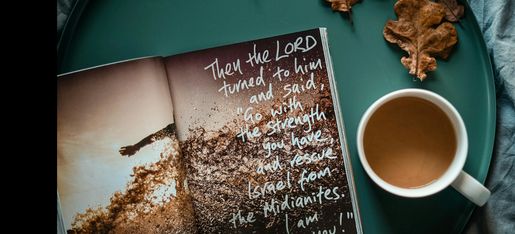 Then the LORD
turned to him
and said,
"Go with
the strength
you have
and rescue
Israel from
the Midianites.
I am
you!"